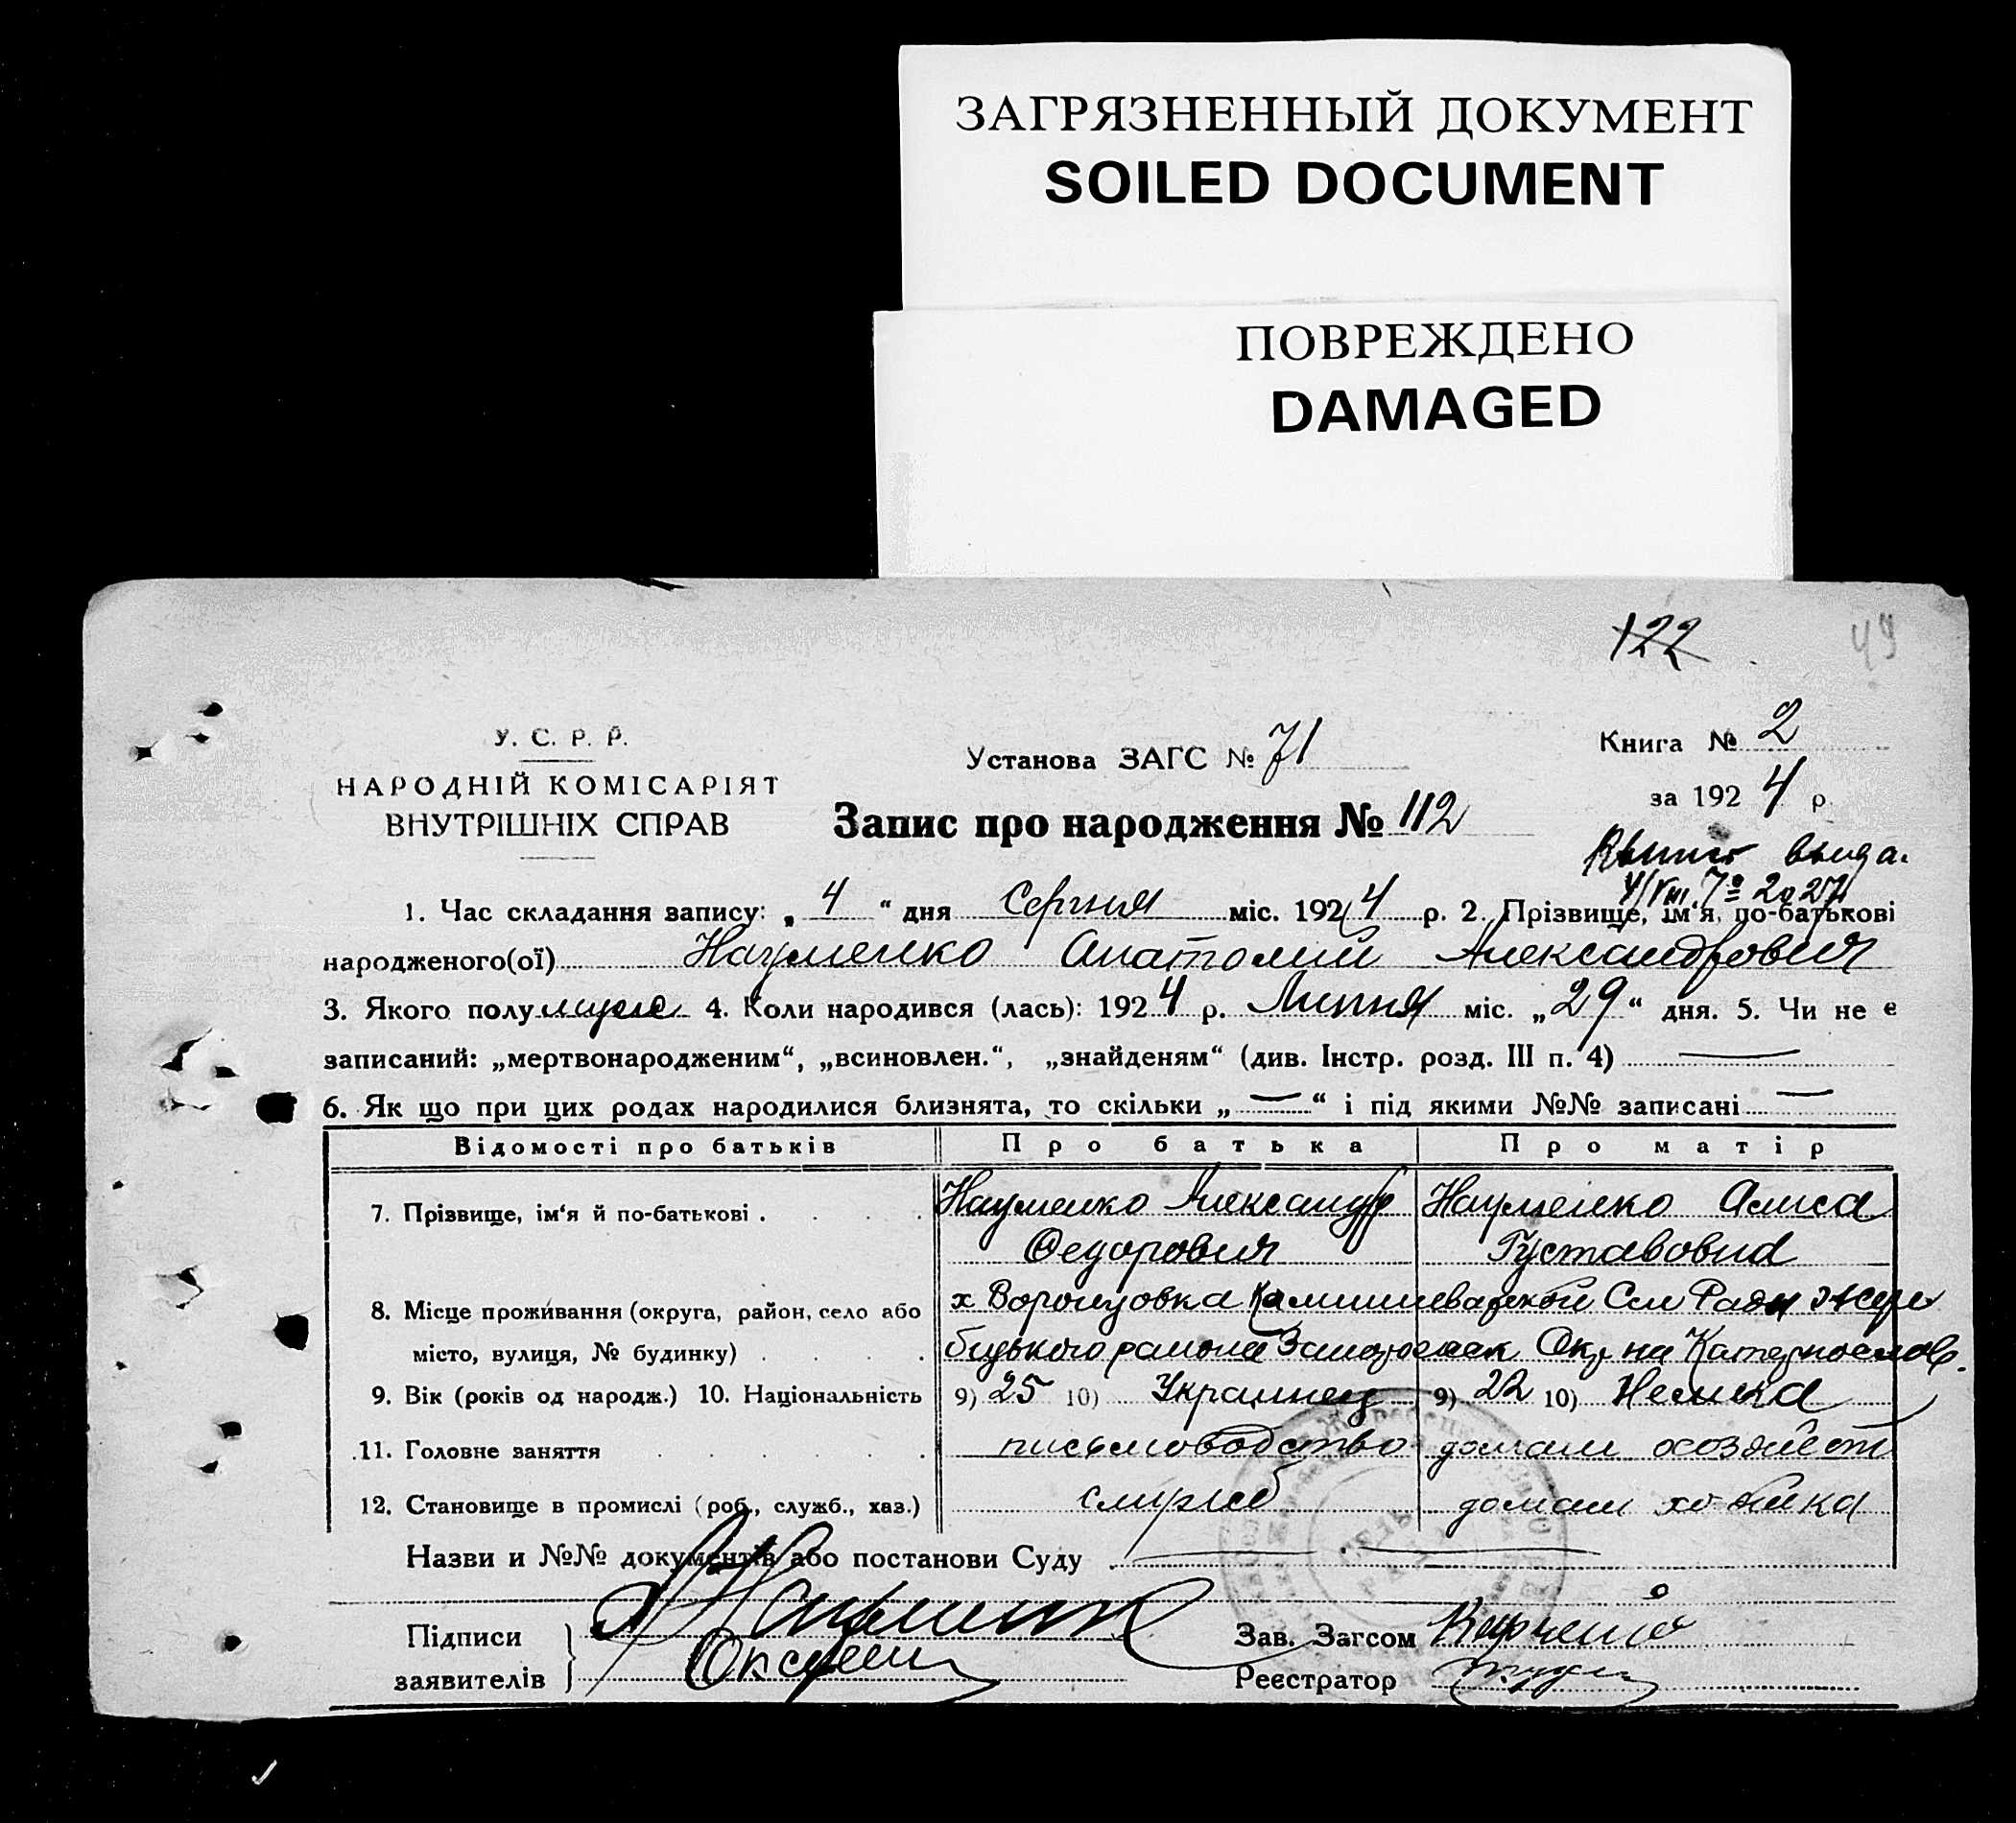 ЗАГРЯЗНЕННЫЙ ДОКУМЕНТ
SOILED DOCUMENT
ПОВРЕЖДЕНО
DAMAGED
122 49
У. С. Р. Р.
НАРОДНІЙ КОМІСАРІЯТ
ВНУТРІШНІХ СПРАВ
Установа ЗАГС № 71
Запис про народження № 112
Книга № 2
за 1924 р.
1. Час складання запису: „4“ дня Серпня міс. 1924 р. 2. Прізвище, ім'я, по-батькові
народженого(ої) Науменко Анатолий Александрович
3. Якого полу муже 4. Коли народився (лась): 1924 р. Липня міс. „29“ дня. 5. Чи не є
записаний: „мертвонародженим“, „всиновлен.“, „знайденям“ (див. Інстр. розд. III п. 4) —
6. Як що при цих родах народилися близнята, то скільки „—“ і під якими №№ записані —
Відомості про батьків Про батька Про матір
7. Прізвище, ім'я й по-батькові . Науменко Александр Науменко Алиса
Федорович Густавовна
8. Місце проживання (округа, район, село або х Воронцовка Сел Рады
місто, вулиця, № будинку) района Окр на
9. Вік (років од народж.) 10. Національність 9) 25 10) Украинец 9) 22 10) Немка
11. Головне заняття письмоводство домаш
12. Становище в промислі (роб., служб., хаз.) служб домаш
Назви и №№ документів або постанови Суду —
Підписи
заявителів
Зав. Загсом
Реєстратор